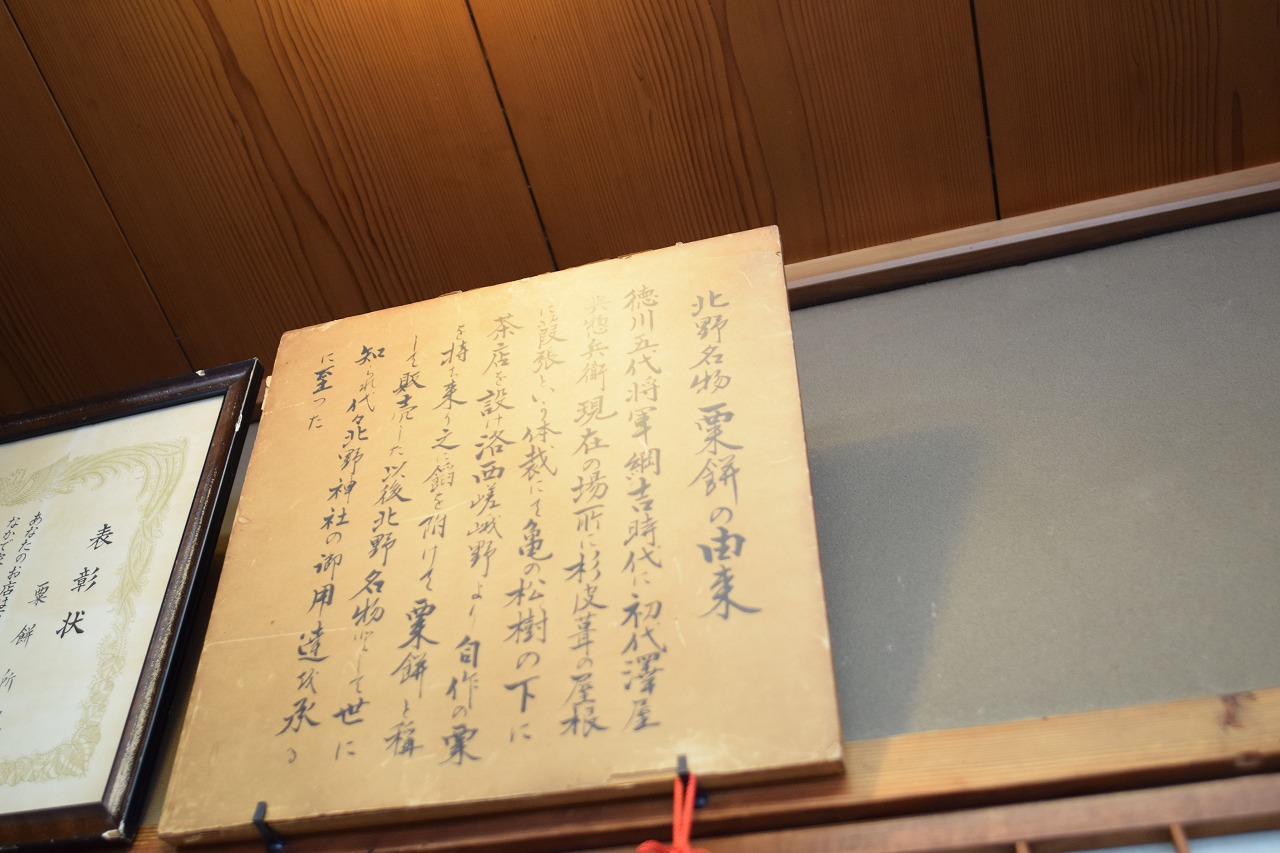 北野名物 粟餅の由来
徳川五代将軍綱吉時代に初代澤屋
兵惣兵衛現在の場所に杉皮葺の屋根
に葭張という体裁にて亀の松樹の下に
茶店を設け洛西嵯峨野より自作の粟
を持ち来り之に餡を附けて粟餅と称
して販売した以後北野名物として世に
知られ代々北野神社の御用達を承る
に至った
表彰状
粟餅所
あなたのお店は
なかでも